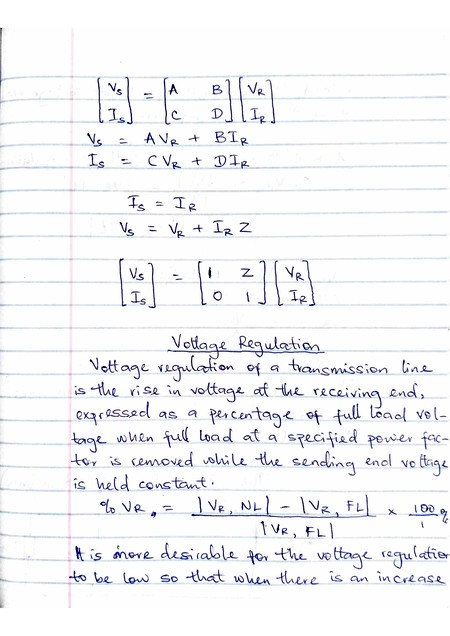 [Vs Is] = [A B C D] [VR IR]
Vs = AVR + BIR
Is = CVR + DIR
Is = IR
Vs = VR + IR Z
[Vs Is] = [1 Z 0 1] [VR IR]
Voltage Regulation
Voltage regulation of a transmission line
is the rise in voltage at the receiving end,
expressed as a percentage of full load vol-
tage when full load at a specified power fac-
tor is removed while the sending end voltage
is held constant.
% VR. = |VR, NL| - |VR, FL| / |VR, FL| × 100/1 %
It is more desirable for the voltage regulation
to be low so that when there is an increase